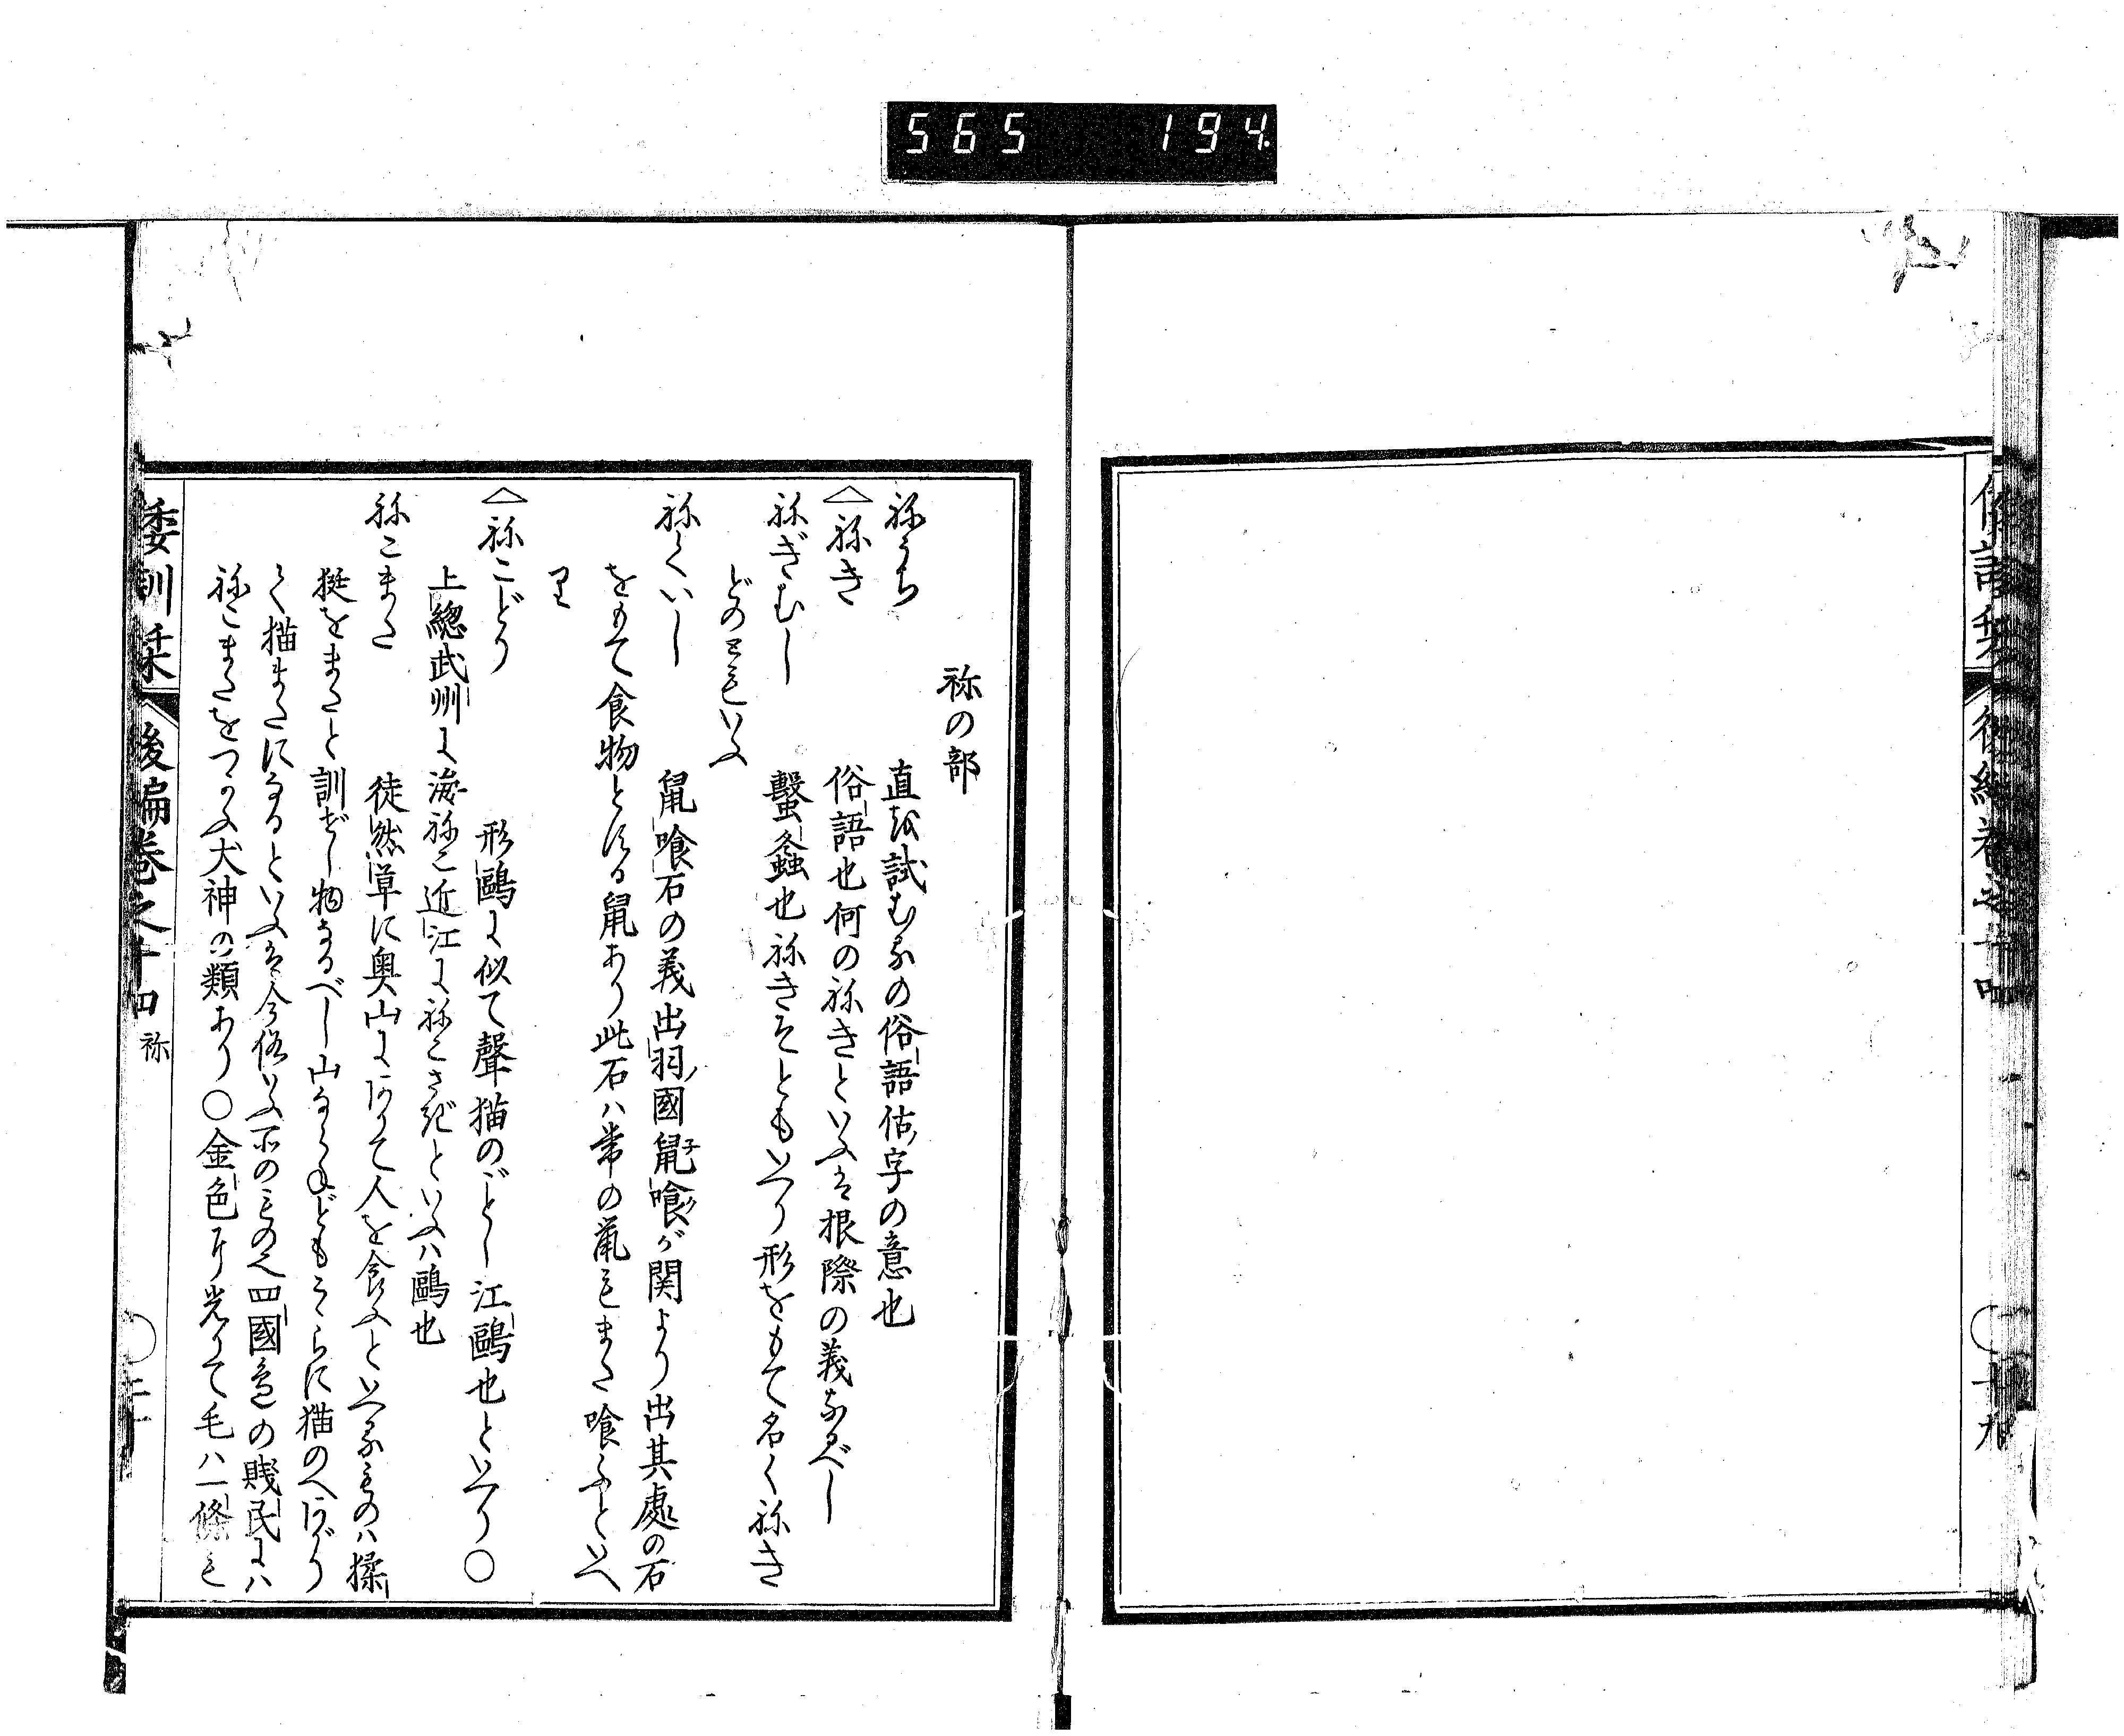 565 194.
後編
十九
祢の部
祢うち 直を試むるの俗語估ノ字の意也
△祢き 俗語也何の祢きといふは根際の義なるべし
祢ぎむし 螱螽也祢きそともいへり形をもて名く祢き
どのともいふ
祢くいし 鼠喰石の義出羽ノ國鼠喰ガ関より出其處の石
をもて食物とする鼠あり此石ハ常の鼠もまた喰ふといへ
り
△祢こどり 形鷗に似て聲猫のごとし江鷗也といへり○
上總武州に海祢こ近江に祢こさぎといふハ鷗也
祢こまた 徒然草に奥山にありて人を食ふといへるものハ猱
挺をまたと訓ぜし物なるべし山ならねどもこゝらに猫のへあがり
て猫またになるといふは今俗いふ所のもの也四國邊の賤民にハ
祢こまたをつかふ犬神の類あり○金色に光りて毛ハ一條も
倭訓栞 後編巻之十四 祢
○二十